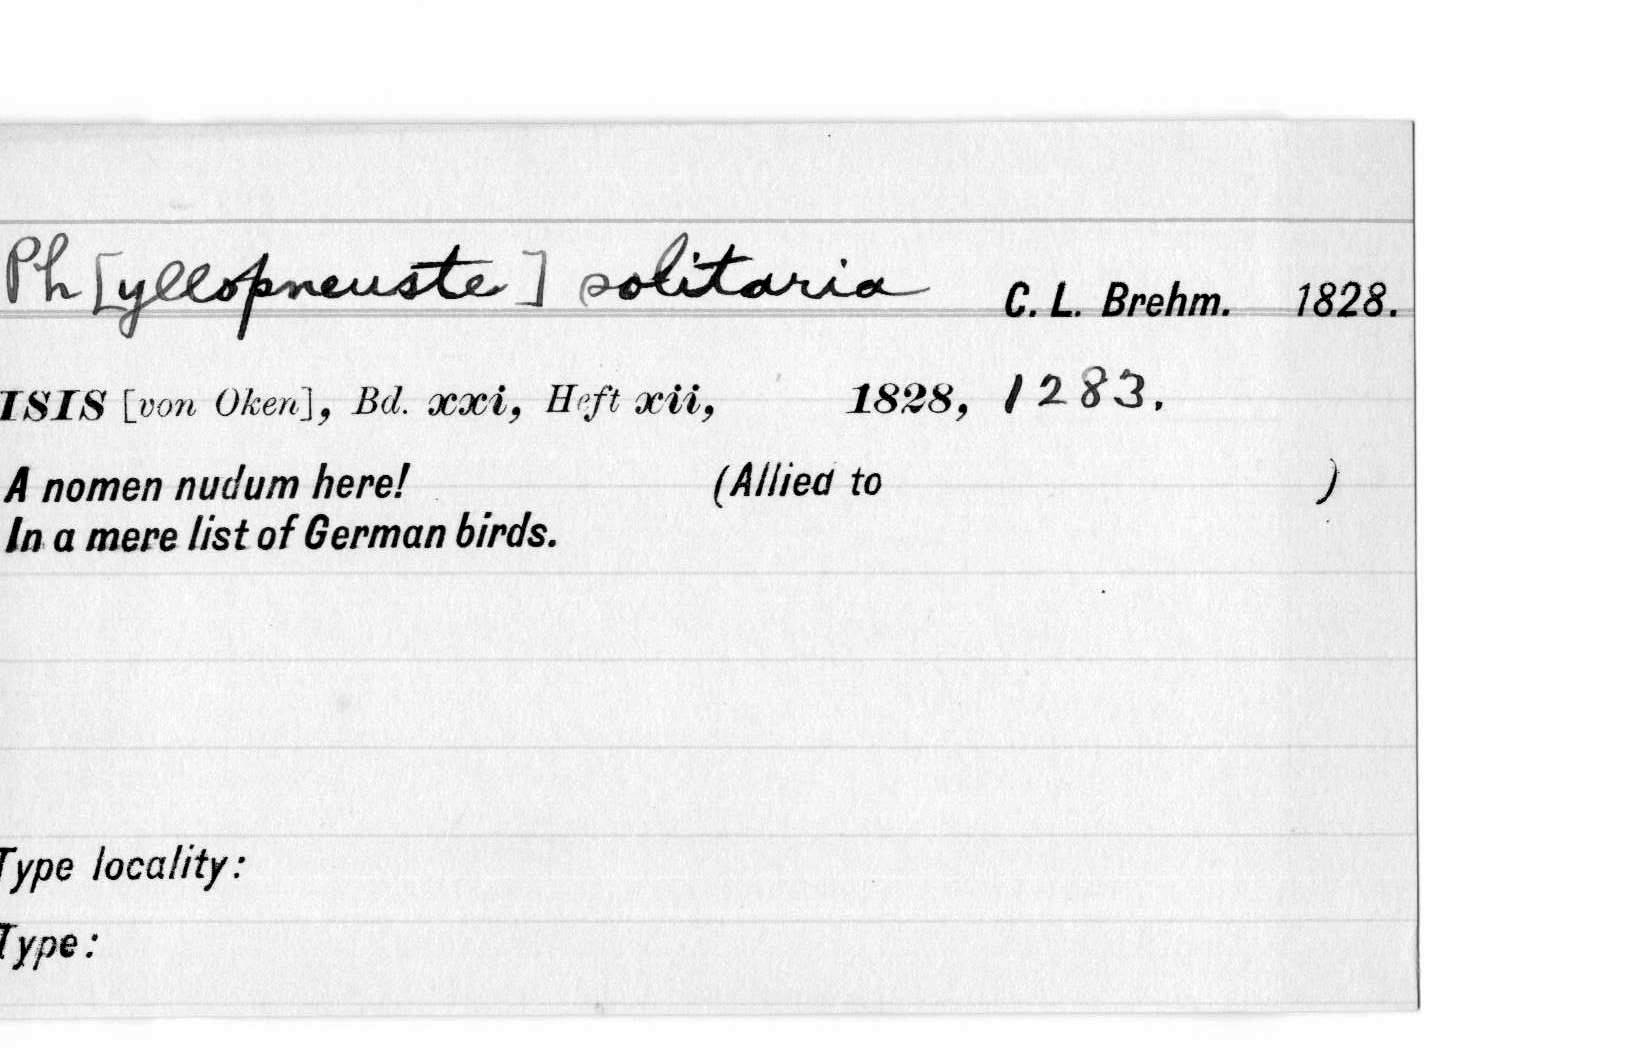 Ph[yllopneuste] solitaria C. L. Brehm. 1828.
ISIS [von Oken], Bd. xxi, Heft xii, 1828, 1283.
A nomen nudum here! (Allied to )
In a mere list of German birds.
Type locality:
Type: